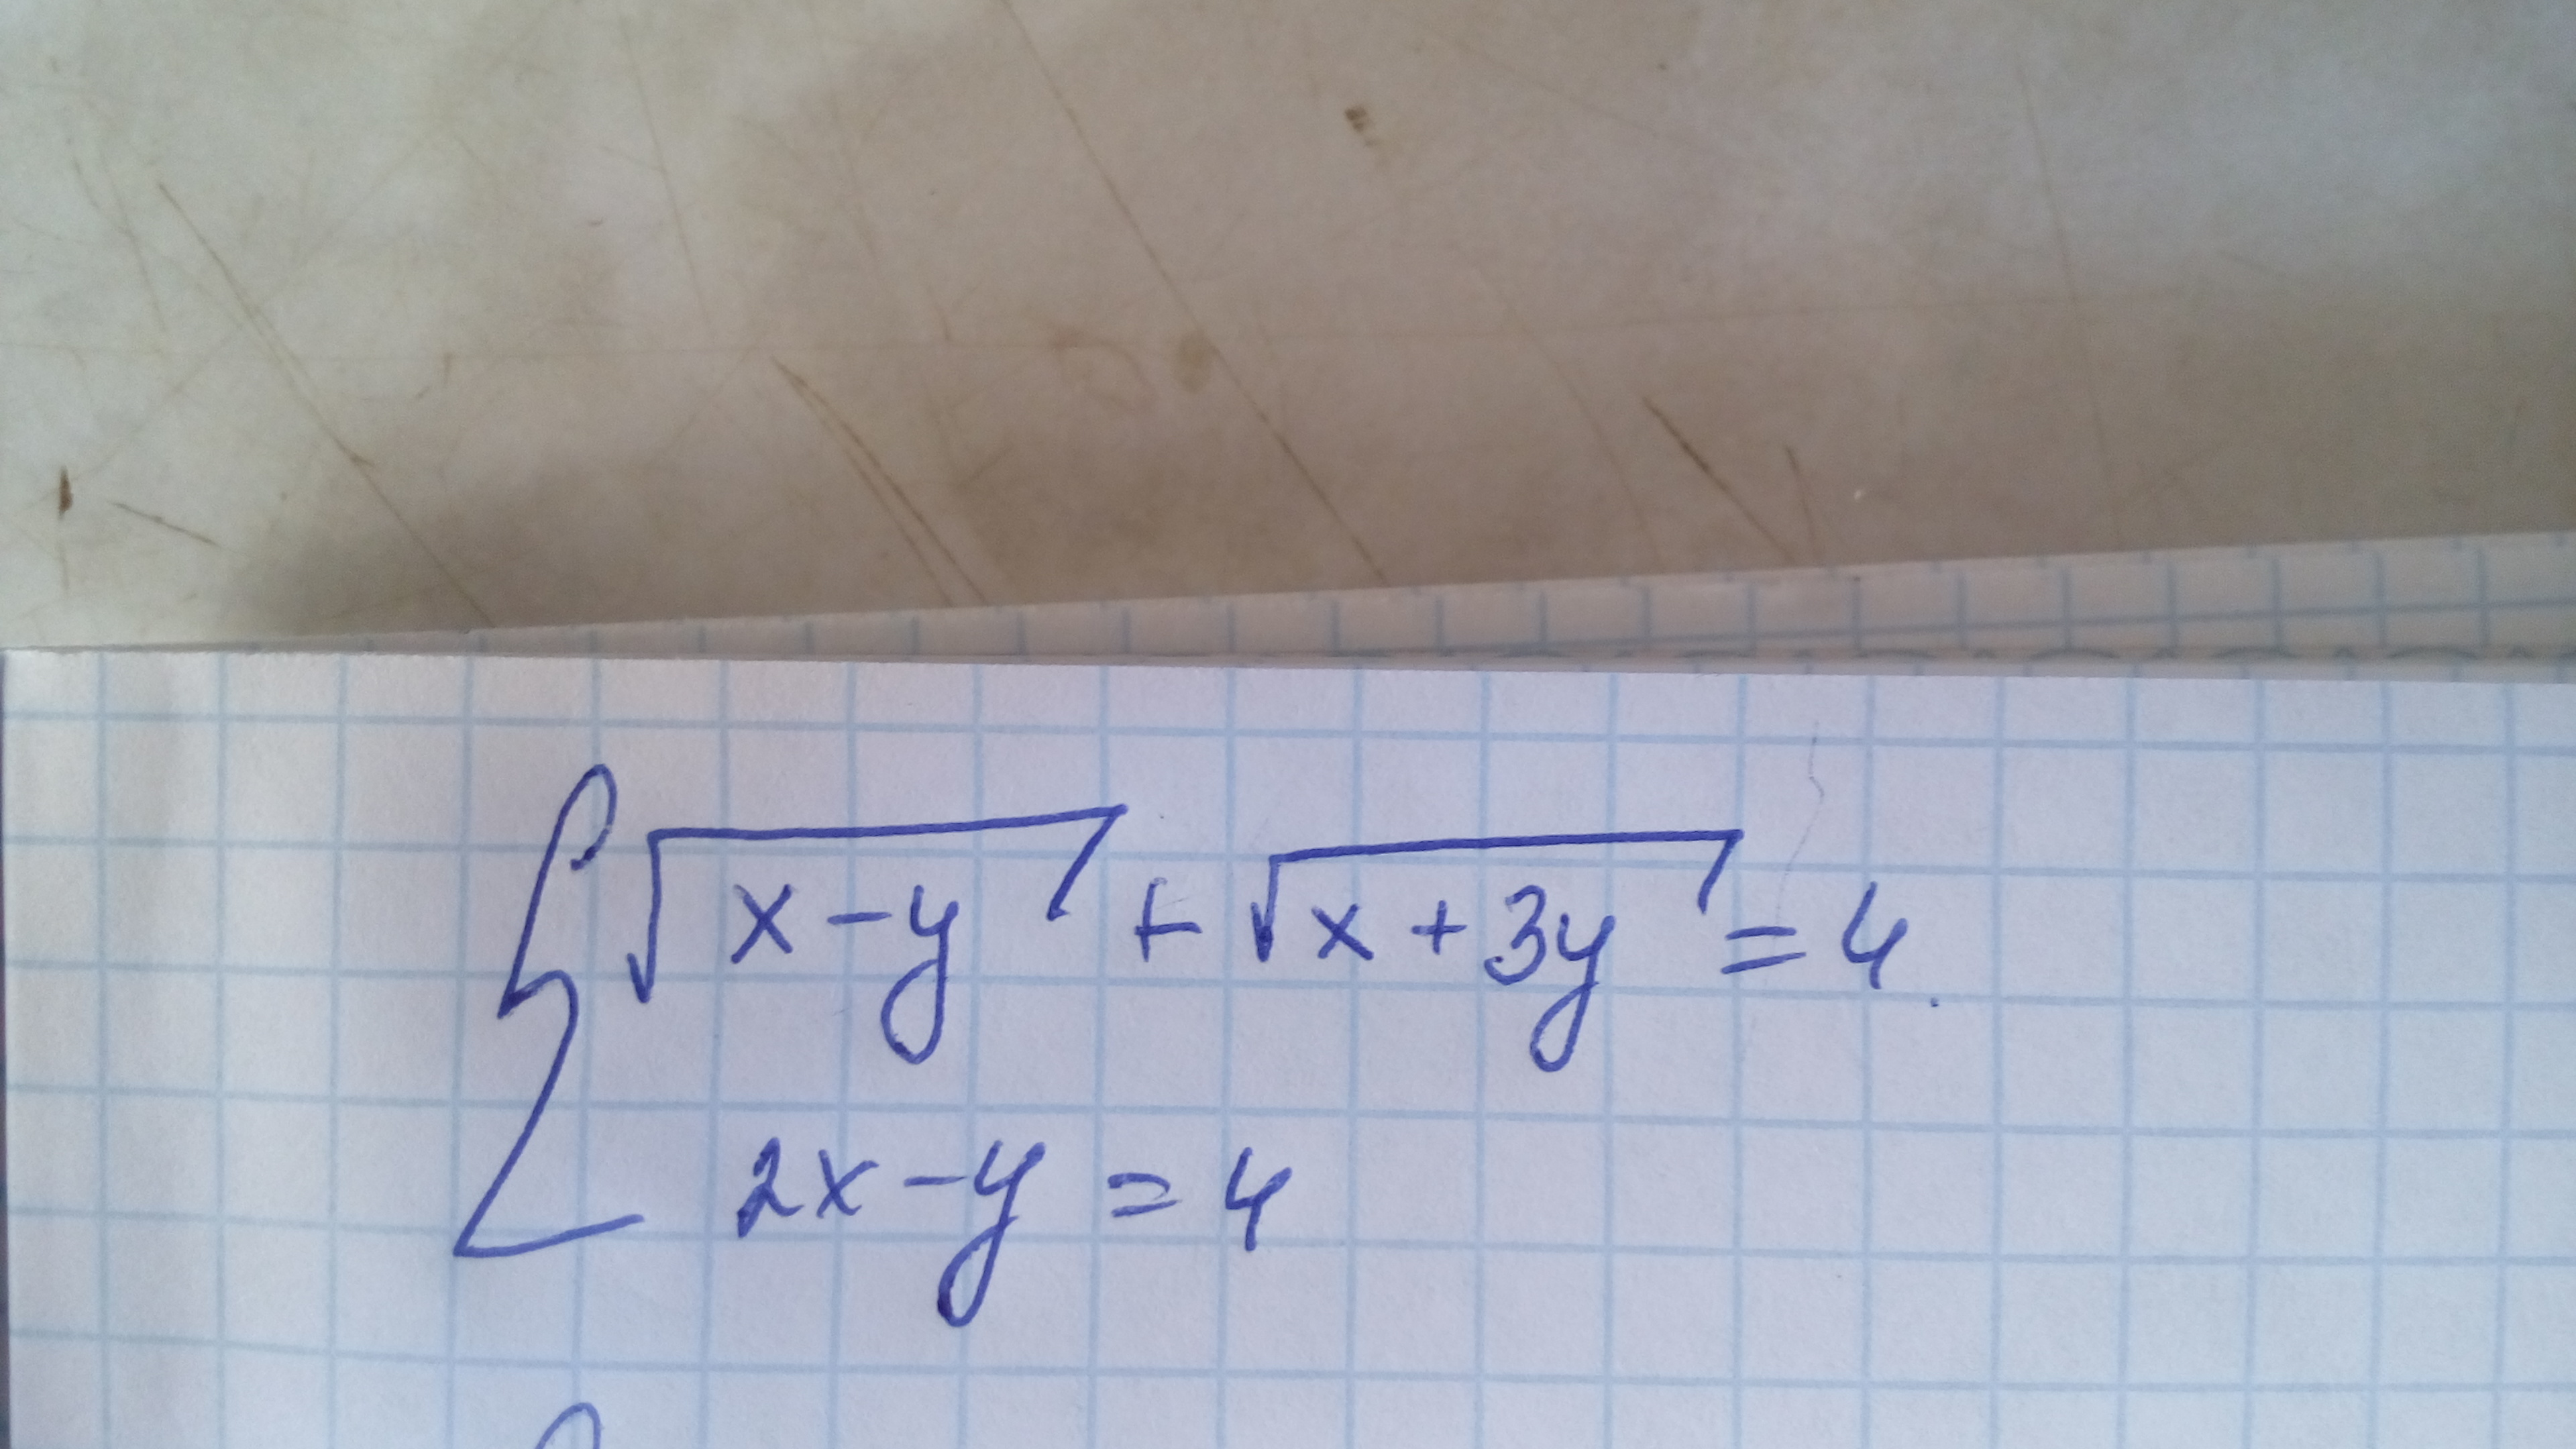 √(x-y) + √(x+3y) = 4.
2x-y = 4